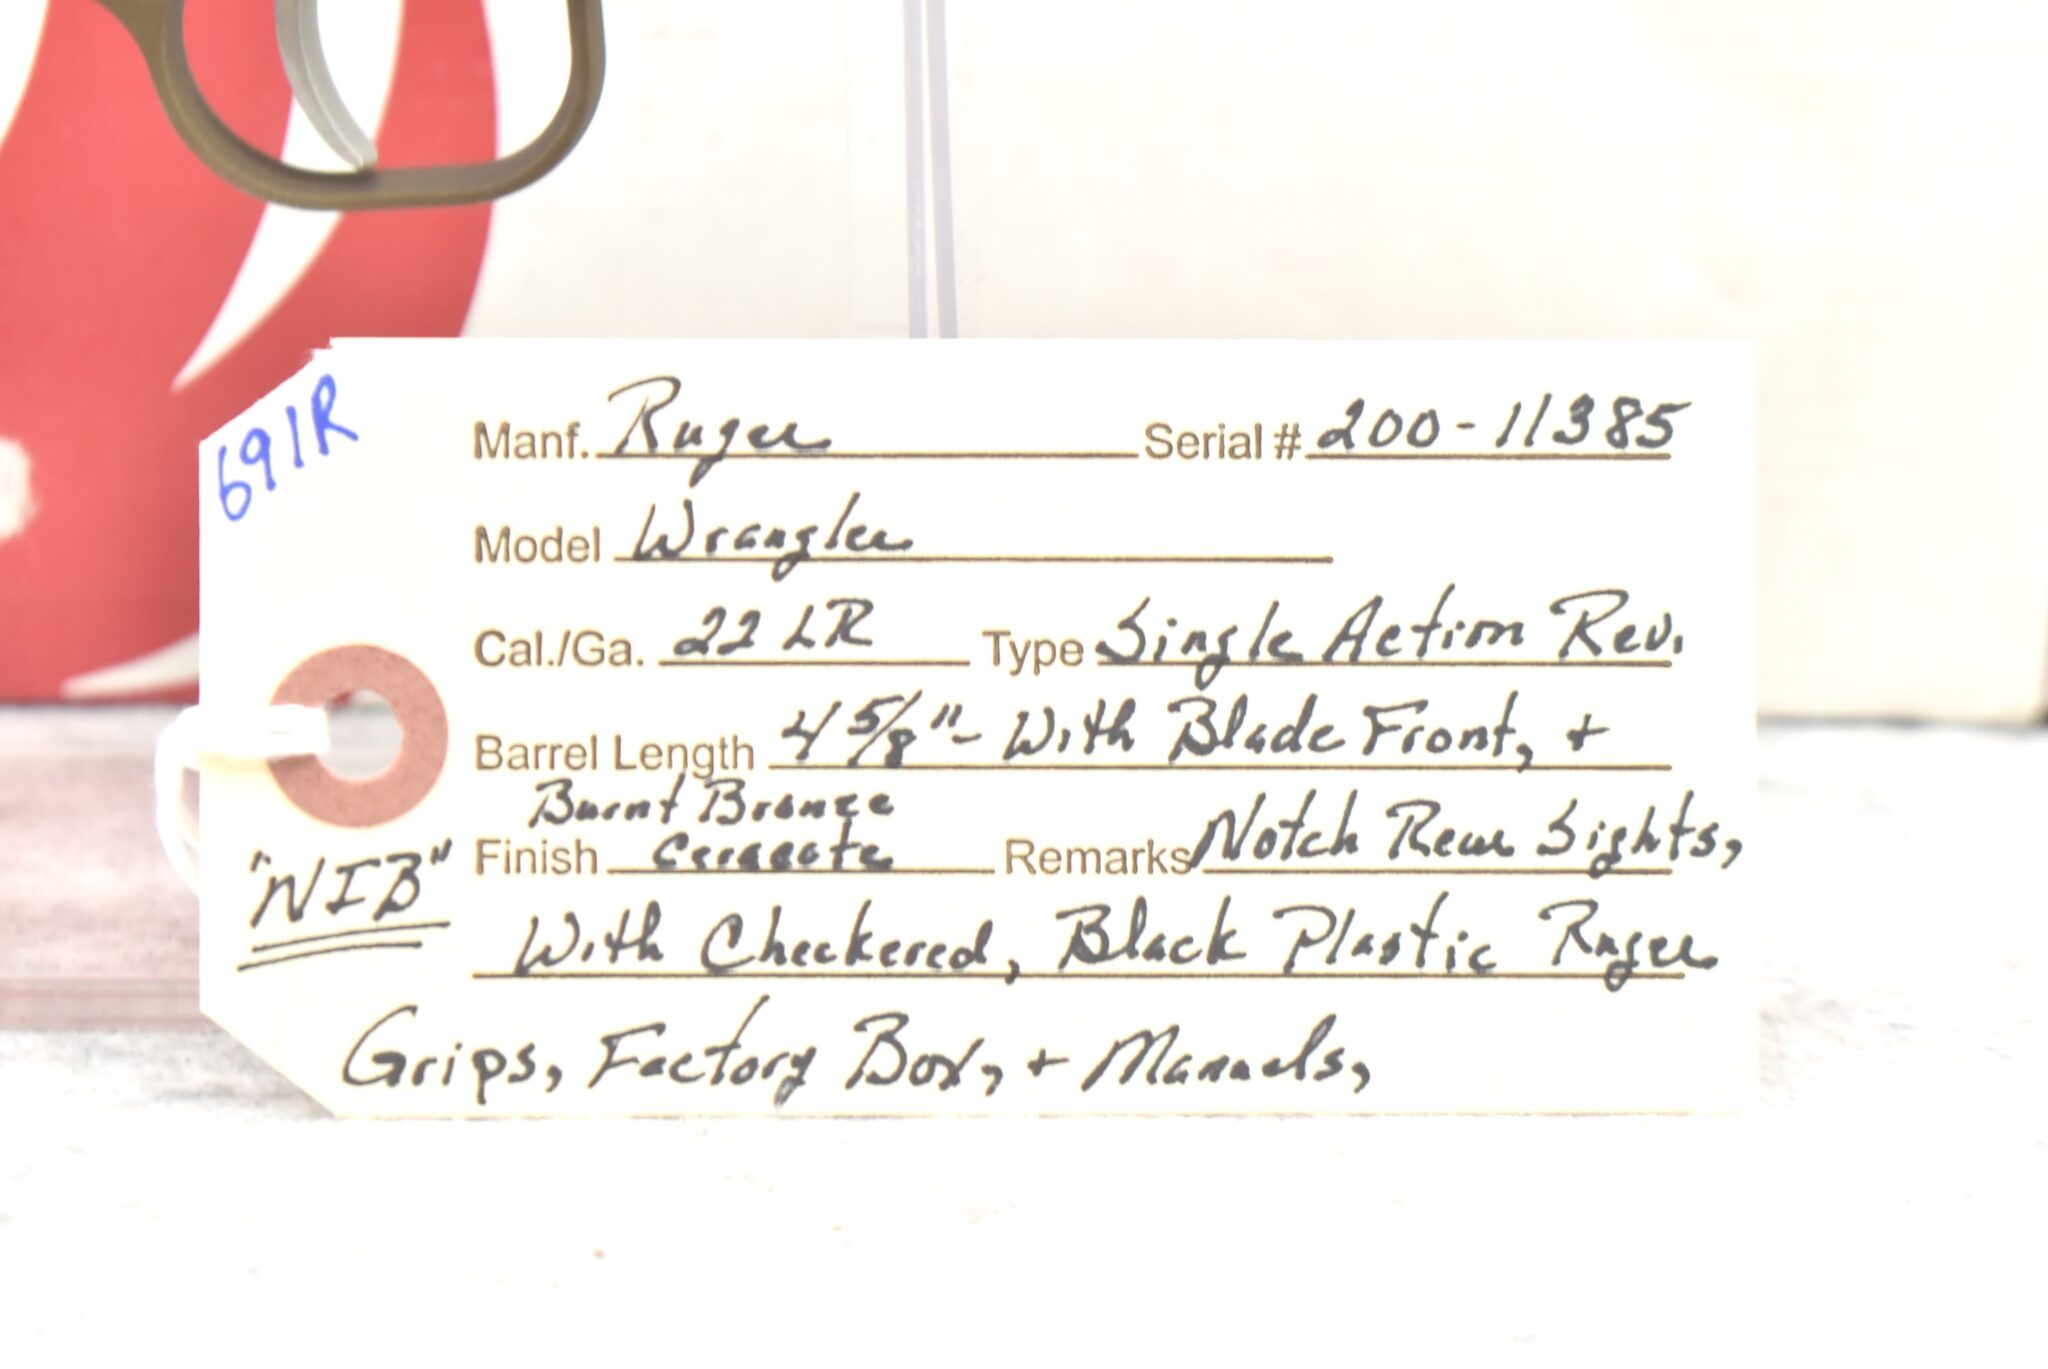 691R
Manf. Ruger Serial # 200-11385
Model Wrangler
Cal./Ga. 22 LR Type Single Action Rev.
Barrel Length 4 5/8"- With Blade Front, +
Burnt Bronze
"NIB" Finish Ceracote Remarks Notch Rear Sights,
With Checkered, Black Plastic Ruger
Grips, Factory Box, + Manuels,